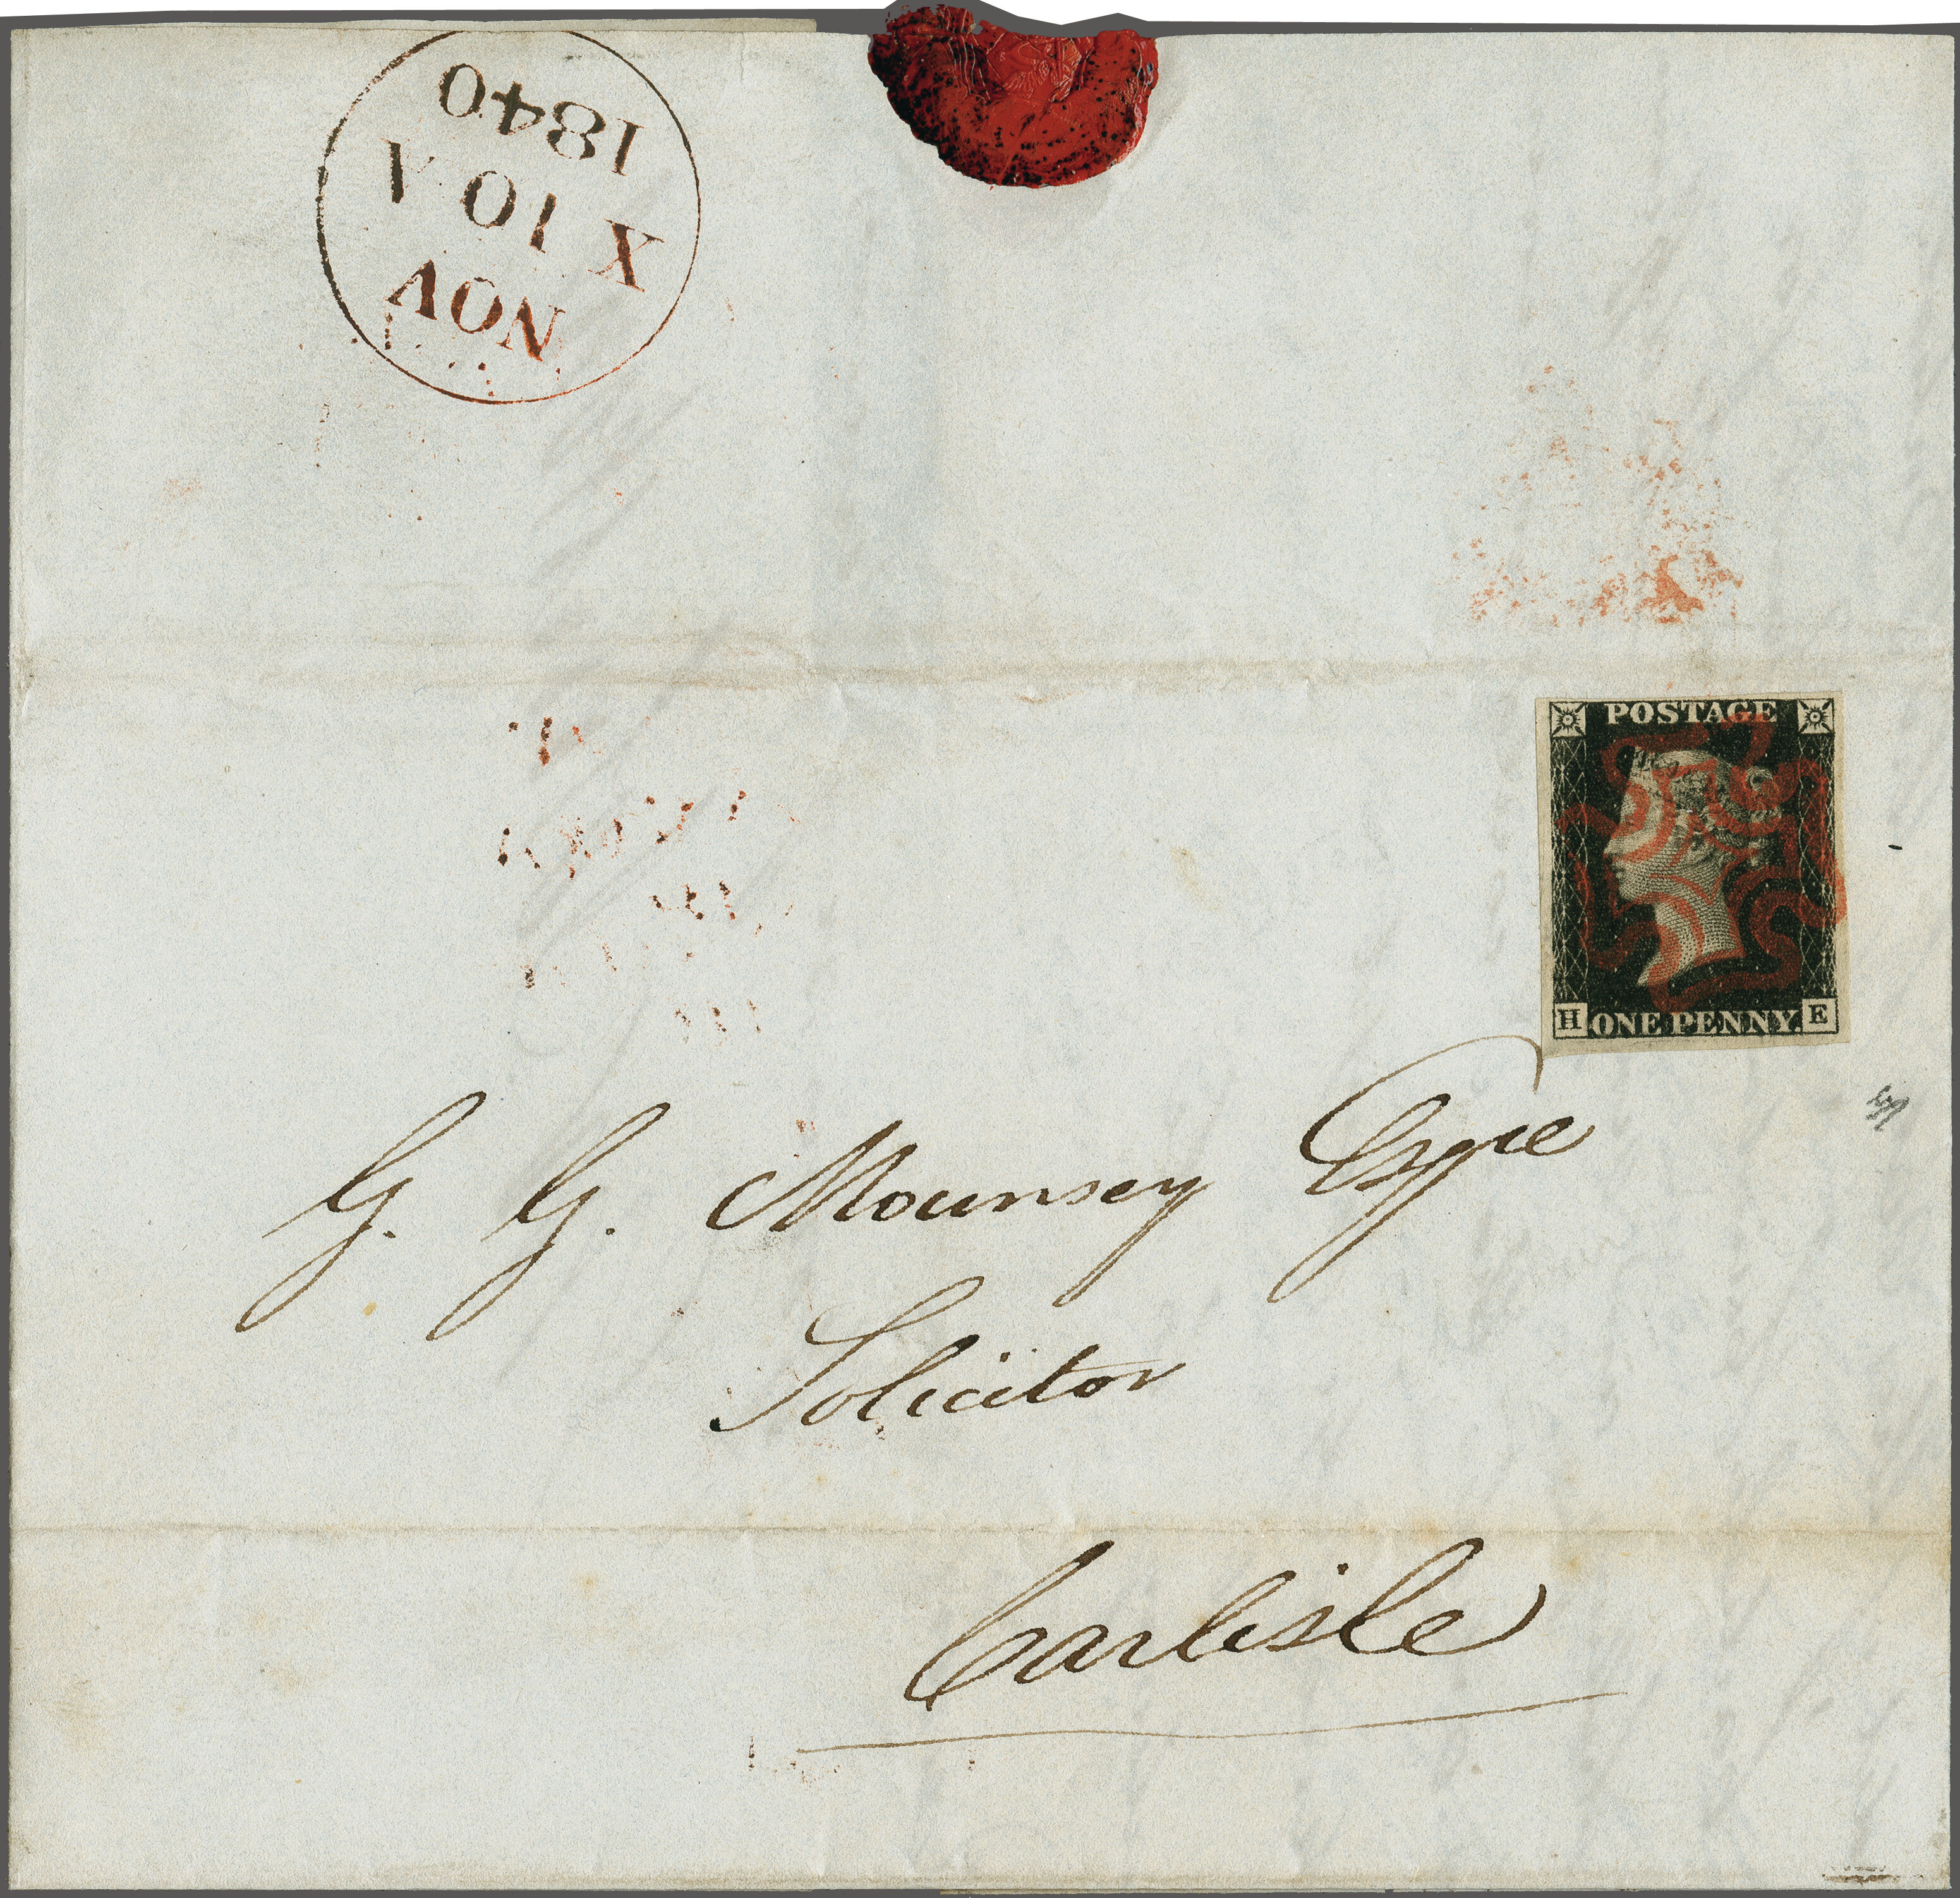 NOV
X 10 A
1840
POSTAGE
H ONE PENNY E
G. G. Mounsey Esqre
Solicitor
Carlisle